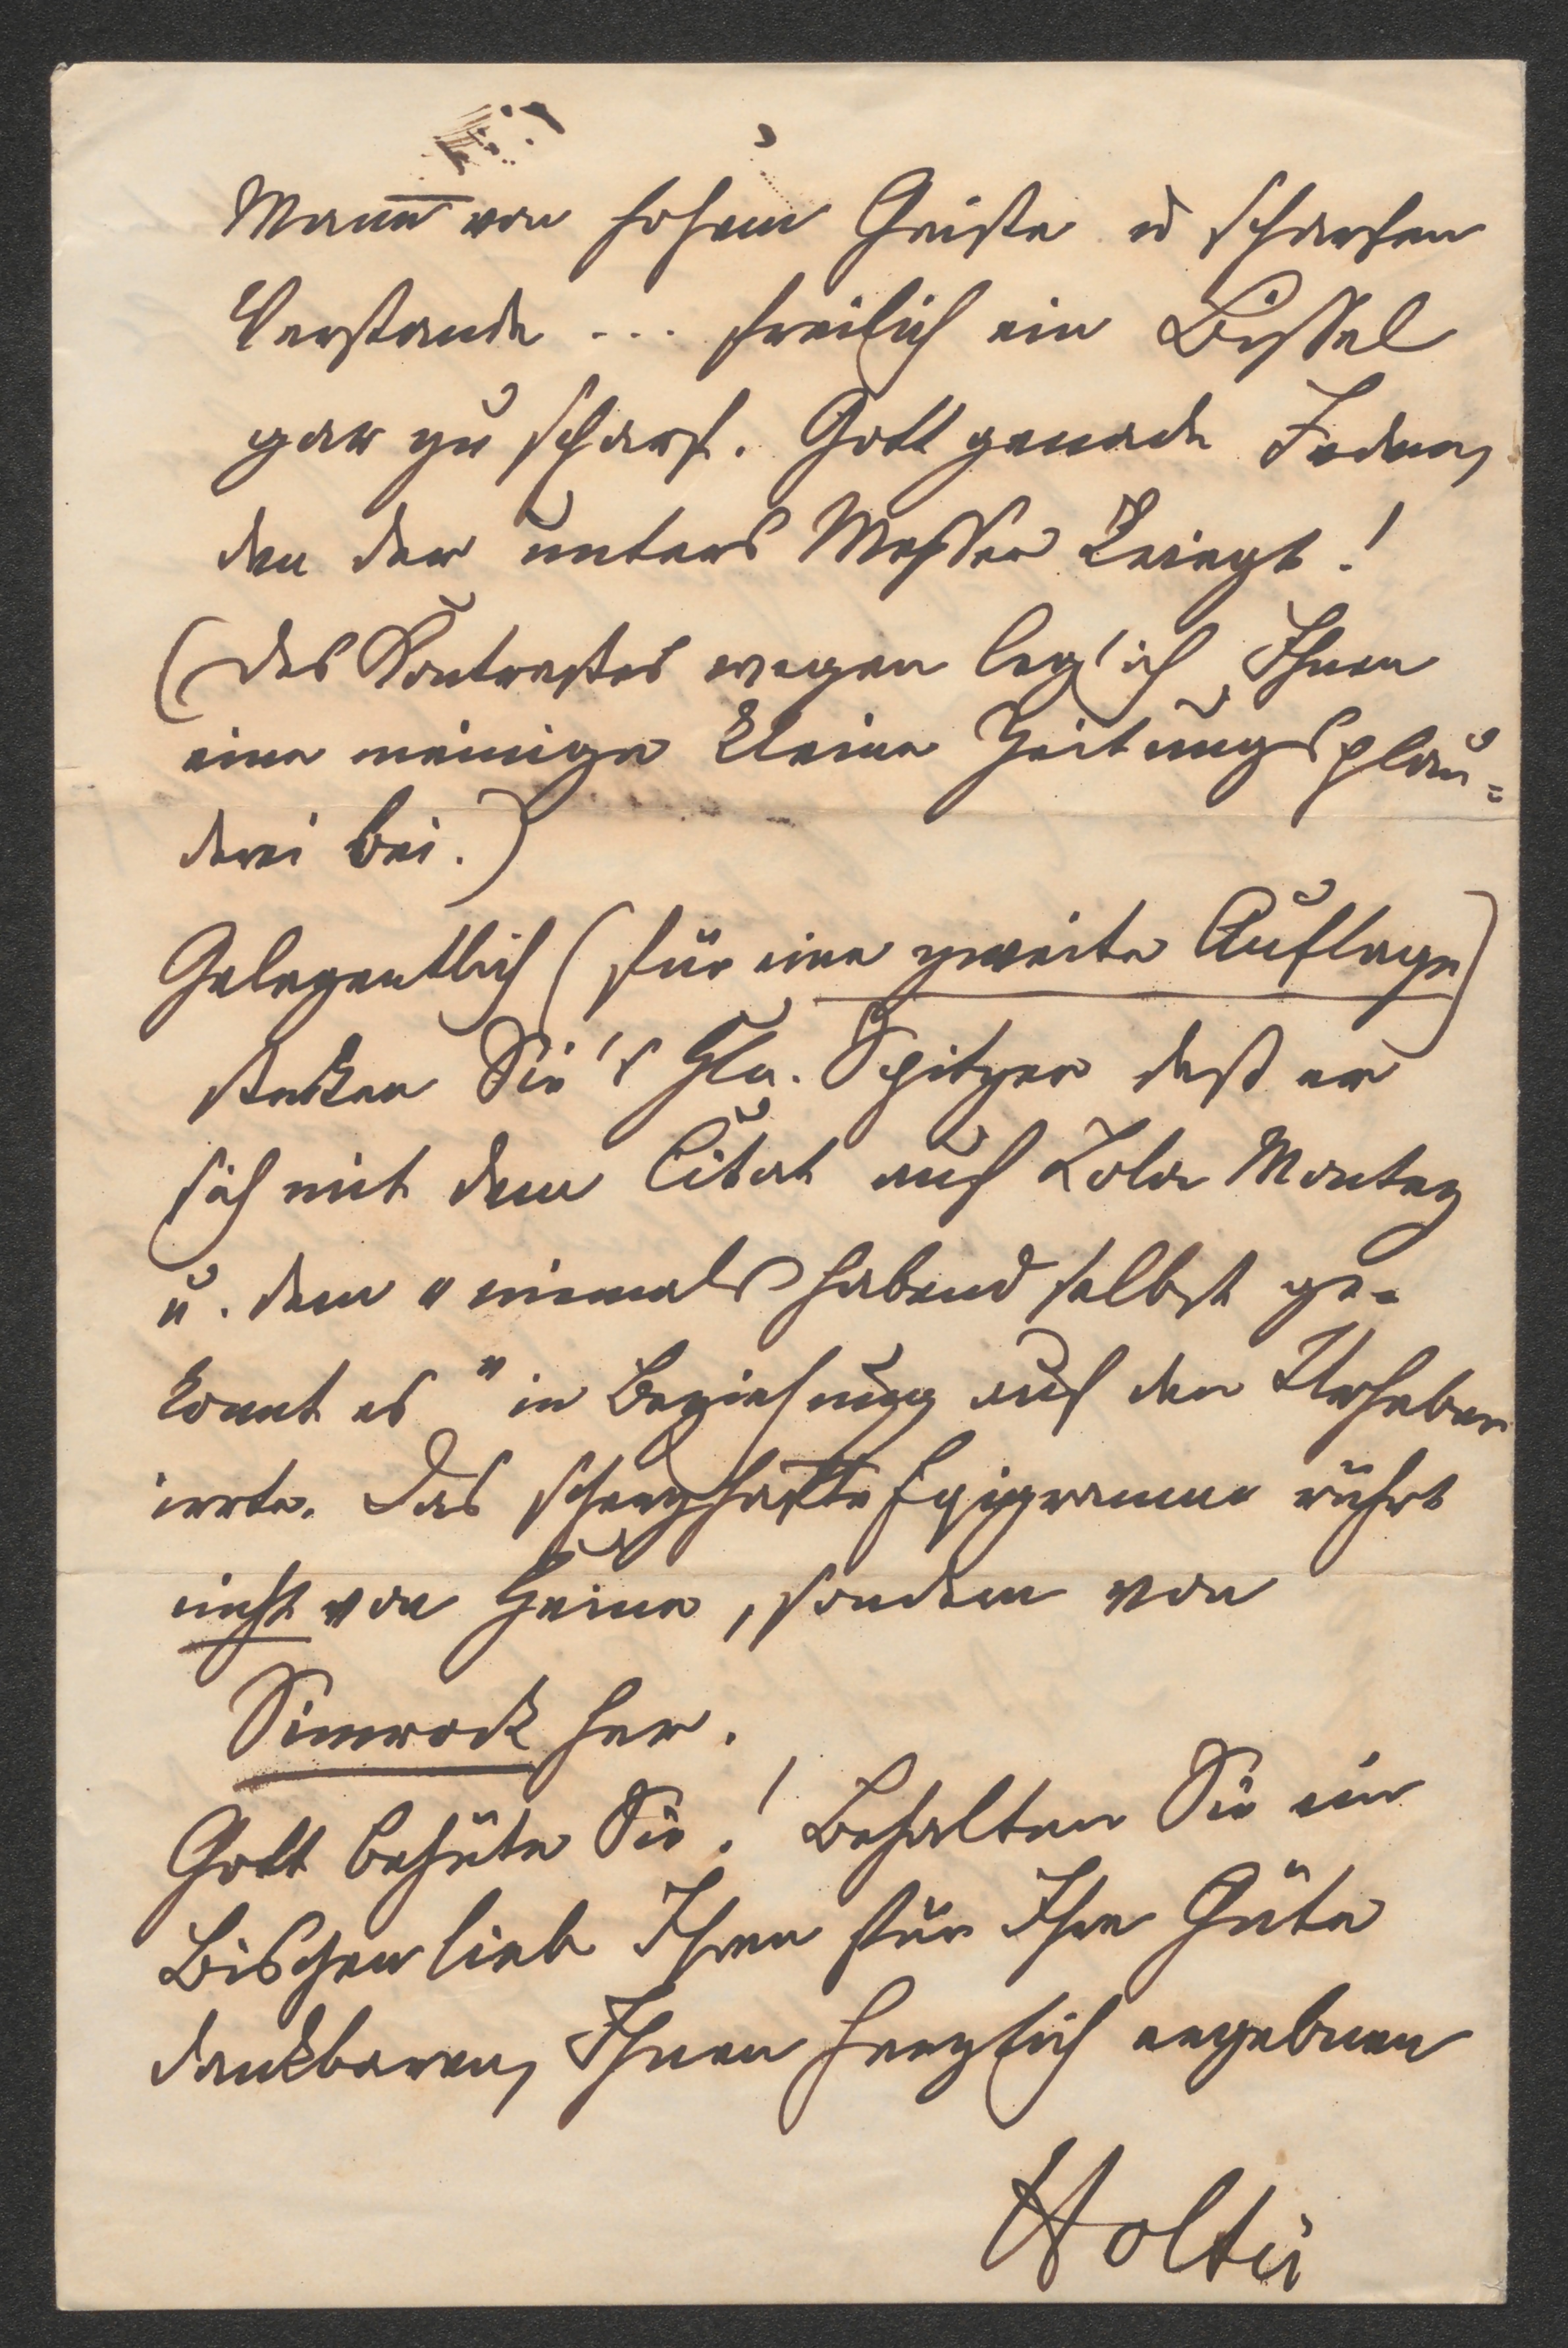 Mann von hohem Geiste u scharfen
Verstande ... freilich ein Bissel
gar zu scharf. Gott genade Jedem,
den der unters Messer kriegt!
(Des Kontrastes wegen leg' ich Ihnen
eine meinige kleine Zeitungsplau=
derei bei.)
Gelegentlich (für eine zweite Auflage)
stecken Sie's Hln. Spitzer daß er
sich mit dem Citat auf Lola Montez
u. dem "niemals habend selbst ge-
konnt es" in Beziehung auf den Urheber
irrte. Das scherzhafte Epigramm rührt
nicht von Heine, sondern von
Simrock her.
Gott behüte Sie! Behalten Sie ein
Bischen lieb Ihren für Ihre Güte
dankbaren, Ihnen herzlich ergebnen
Holtei